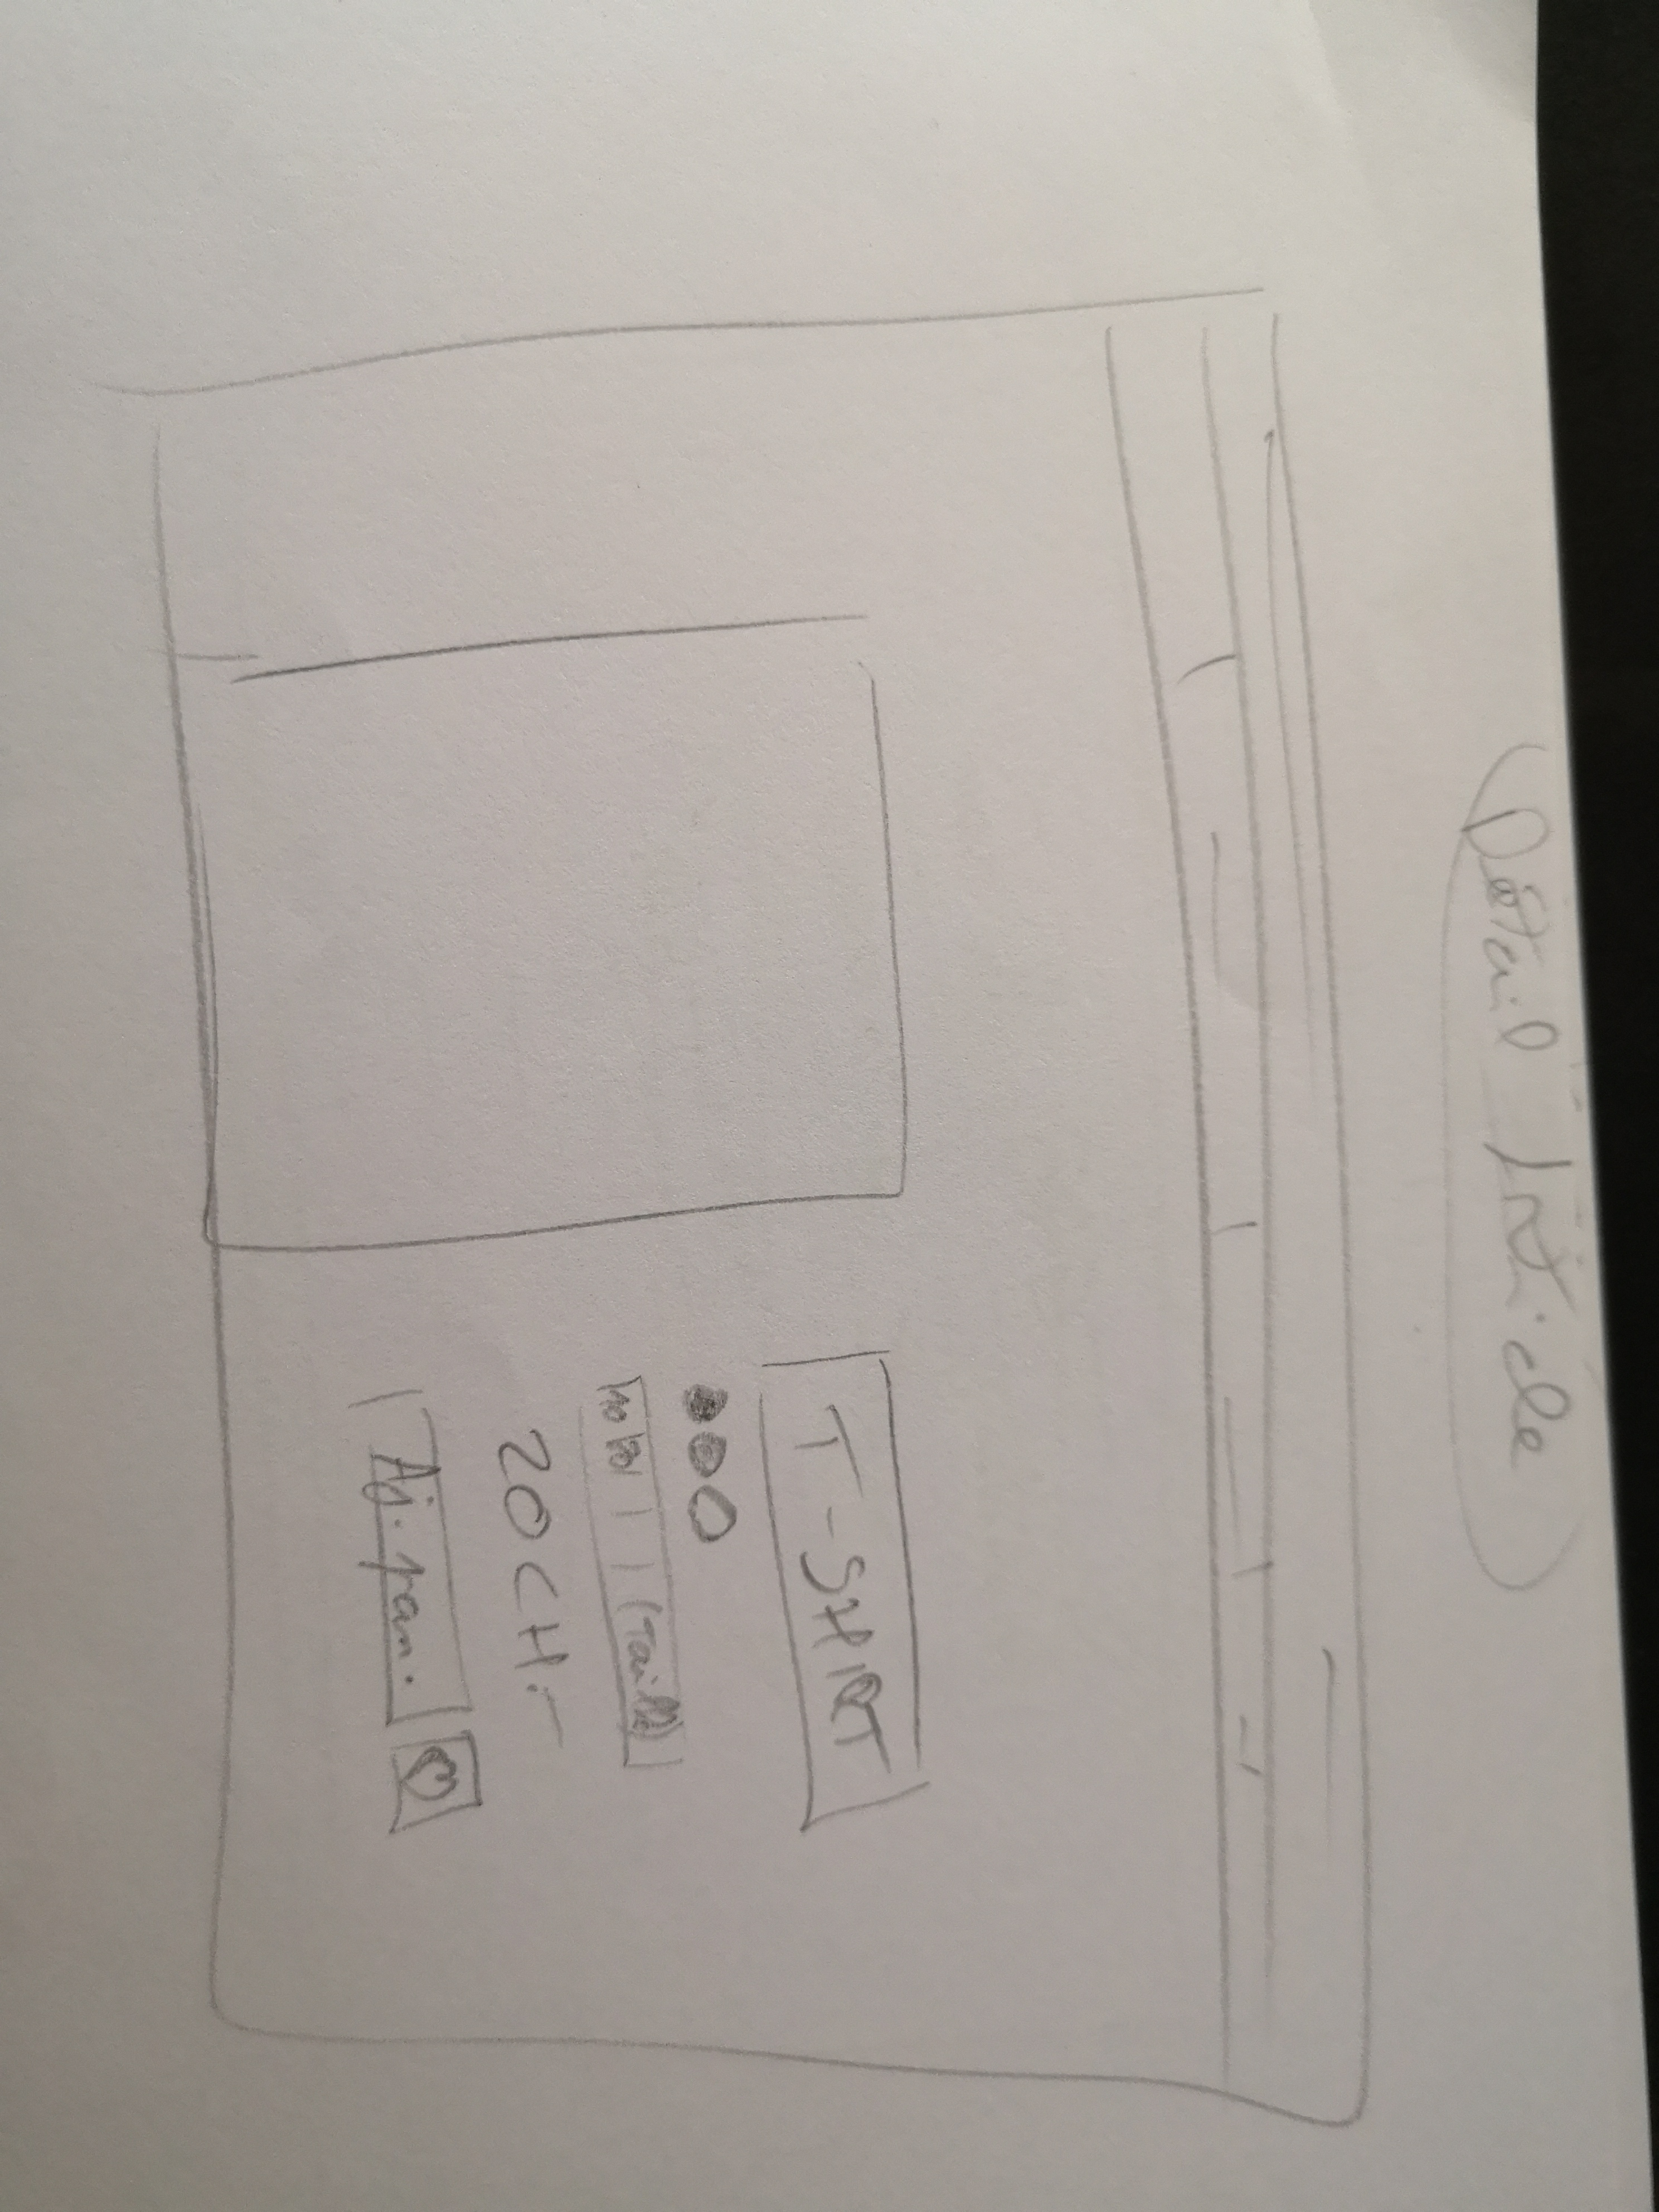 Détail Article
T-SHIRT
(Taille)
20 CH.-
Aj. pan.